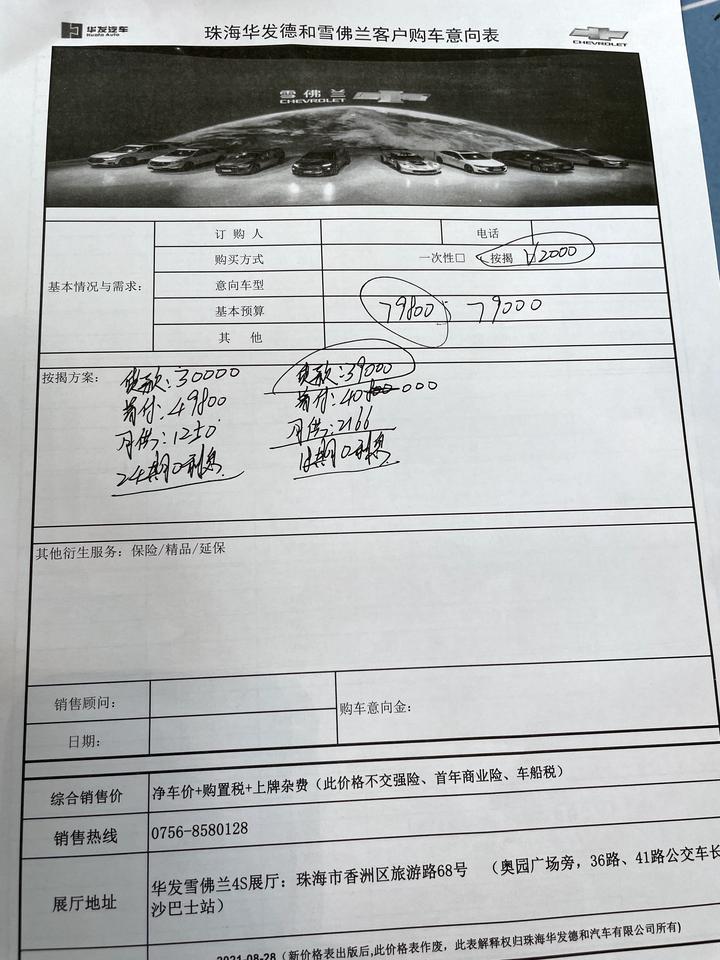 华发汽车
Huafa Auto
珠海华发德和雪佛兰客户购车意向表
CHEVROLET
雪佛兰
CHEVROLET
基本情况与需求:
订购人
电话
购买方式
一次性□ 按揭 2000
意向车型
基本预算
79800 79000
其 他
按揭方案:
贷款:30000
首付:49800
月供:1250
24期0利息
贷款:39000
首付:40800 000
月供:2166
18期0利息
其他衍生服务: 保险/精品/延保
销售顾问:
购车意向金:
日期:
综合销售价
净车价+购置税+上牌杂费(此价格不交强险、首年商业险、车船税)
销售热线
0756-8580128
展厅地址
华发雪佛兰4S展厅: 珠海市香洲区旅游路68号 (奥园广场旁, 36路、41路公交车长
沙巴士站)
2021-08-28 (新价格表出版后,此价格表作废, 此表解释权归珠海华发德和汽车有限公司所有)